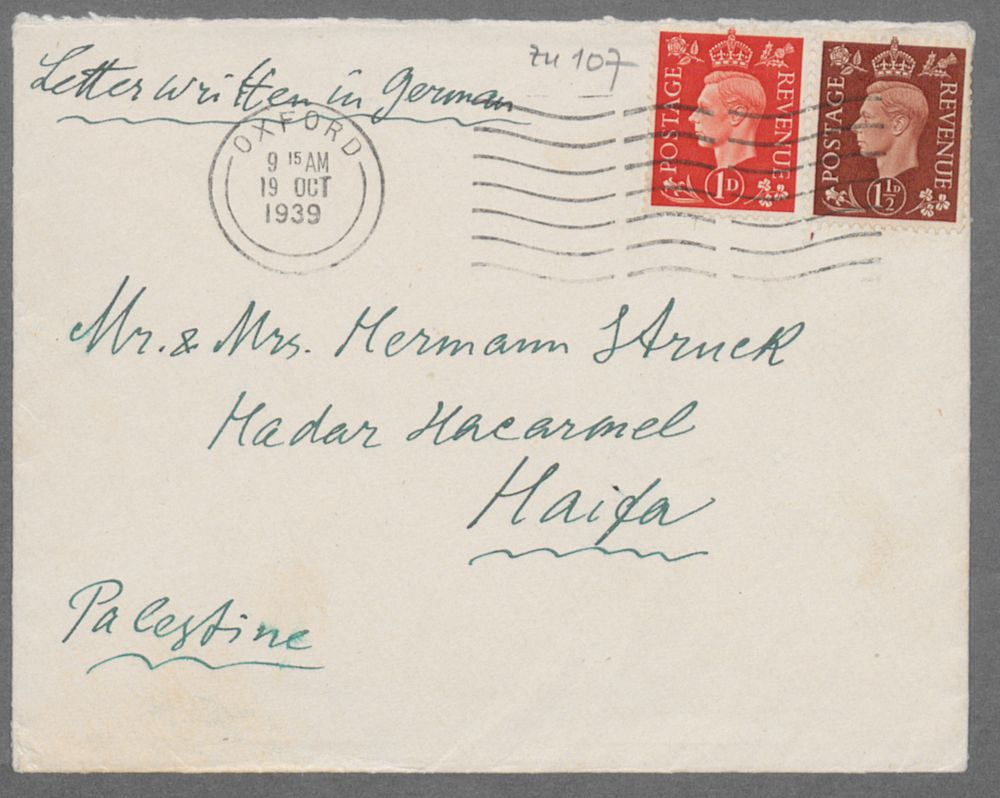 Letter written in German
zu 107
OXFORD
9 15 AM
19 OCT
1939
POSTAGE REVENUE
1D
POSTAGE REVENUE
1½D
Mr. & Mrs. Hermann Struck
Hadar Hacarmel
Haifa
Palestine